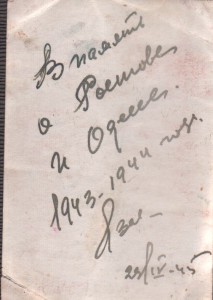 В память
о Ростове
и Одессе.
1943-1944 год.
23/IV-45